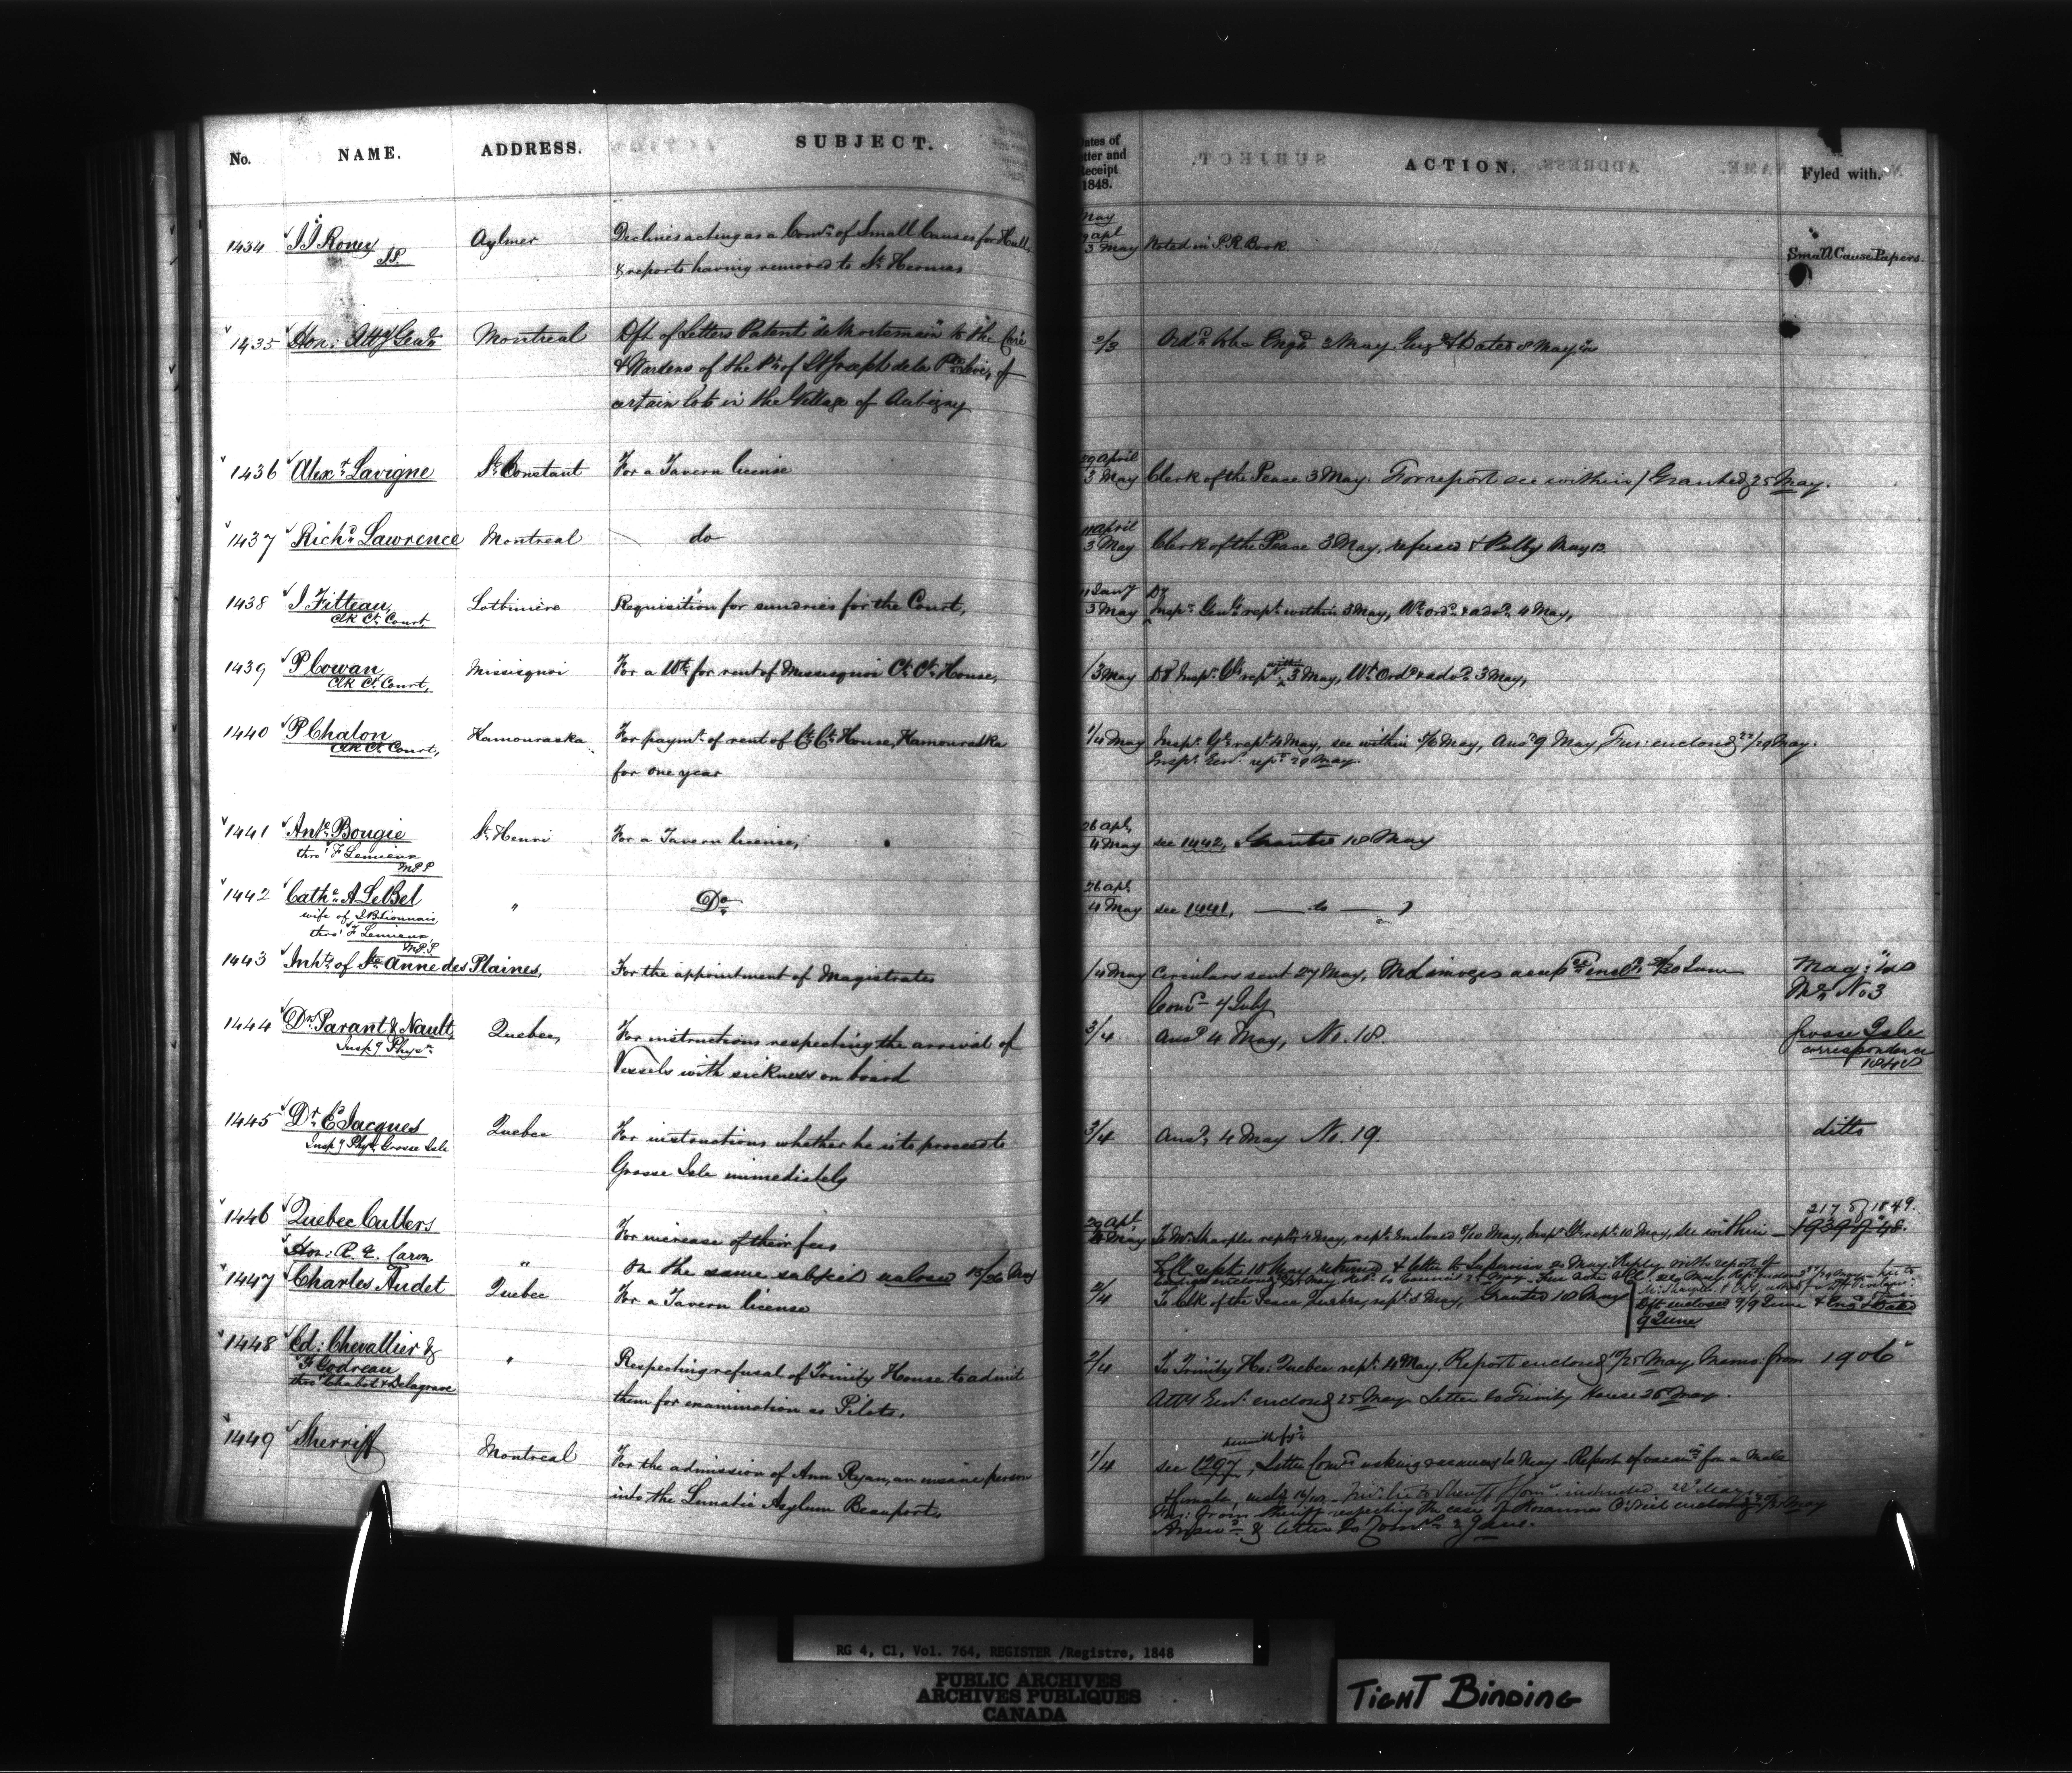 No. NAME. ADDRESS. SUBJECT.
1434 J J Roney Aylmer Declines acting as a Comr. of Small Causes for Hull
J.P. & reports having removed to St. Hermas
1435 Hon: Atty Genl. Montreal Dft of Letters Patent "de Mortemain" to the Curé
& Wardens of the Ph. of St Joseph de la Pte Levi, of
certain lots in the Village of Aubigny
1436 Alexr. Lavigne St. Constant For a Tavern license
1437 Richd. Lawrence Montreal do
1438 J Filteau, Lotbinière Requisition for sundries for the Court,
Clk Ct. Court,
1439 P Cowan, Missisquoi For a Wt. for rent of Missisquoi Ct. Ct. House,
Clk Ct. Court,
1440 P Chalon Kamouraska For paymt. of rent of Ct. Ct. House, Kamouraska
Clk Ct. Court, for one year
1441 Ante. Bougie St. Henri For a Tavern license,
thro' F Lemieux
M P P
1442 Cathe. A LeBel " Do
wife of J B Lionnais
thro' F Lemieux
M.P.P
1443 Inhts. of Ste. Anne des Plaines, For the appointment of Magistrates
1444 Drs. Parant & Nault, Quebec, For instructions respecting the arrival of
Inspg Physns. Vessels with sickness on board
1445 Dr. C Jacques Quebec For instructions whether he is to proceed to
Inspg Phyn. Grosse Isle Grosse Isle immediately
1446 Quebec Cullers For increase of their fees
Hon: R. E. Caron " On the same subject enclosed 15/26 May
1447 Charles Audet Quebec For a Tavern license
1448 Ed: Chevallier & " Respecting refusal of Trinity House to admit
F Godreau them for examination as Pilots,
thro' Chabot & Delagrave
1449 Sherriff Montreal For the admission of Ann Ryan, an insane person
into the Lunatic Asylum Beauport,
Dates of
Letter and
Receipt
1848.
ACTION. Fyled with.
May
apl
3 May Noted in P.R. Book. Small Cause Papers.
2/3 Ordd. to be Engd. 3 May. Engd. & Dated 8 May
29 April
3 May Clerk of the Peace 3 May. For report see within / Granted 25 May.
11 April
3 May Clerk of the Peace 3 May, refused May 12
11 Jany Dy
3 May Inspr. Genl. rept. within 3 May, Wt. ordd. & advd. 4 May,
/3 May Dy Inspr. Gl. rept. with. 3 May, Wt. Ordd. & advd. 3 May,
1/4 May Inspr. Gl. rept. 4 May, see within 5/6 May, Ansd. 9 May, Fur: enclosed 22/29 May.
Inspr. Genl. rept. 29 May.
26 apl.
4 May see 1442, Granted 18 May
26 apl.
4 May see 1441, do
/4 May Circulars sent 27 May, Mr Limoges 20 June Mag:
4 July No 3
3/4 Ansd. 4 May, No. 18. Grosse Isle
correspondence
1848
3/4 Ansd. 4 May No. 19. ditto
2178 of 1849.
29 apl.
4 May To Mr. Sharples rept. 4 May, rept. enclosed 8/10 May, Inspr. Gl. rept. 10 May, see within 1939 of 48.
2/4 To Clk of the Peace Quebec, rept. 4 May, Granted 18 May Dft enclosed 9/9 June & Engd. & Dated
9 June
2/4 To Trinity Ho: Quebec rept. 4 May. Report enclosed 18/25 May. Memo: from 1906
Atty Genl. enclosed 25 May. Letter to Trinity House 26 May.
1/4 see 1297, Letter Comrs. asking vacancies 6 May. Report of vacancy for a male
Fur: from Sheriff respecting the case of Rosanna O'Neil enclosed May
& letter to Comrs. 2 June.
RG 4, C1, Vol. 764, REGISTER /Registre, 1848
PUBLIC ARCHIVES
ARCHIVES PUBLIQUES
CANADA
TIGHT BINDING